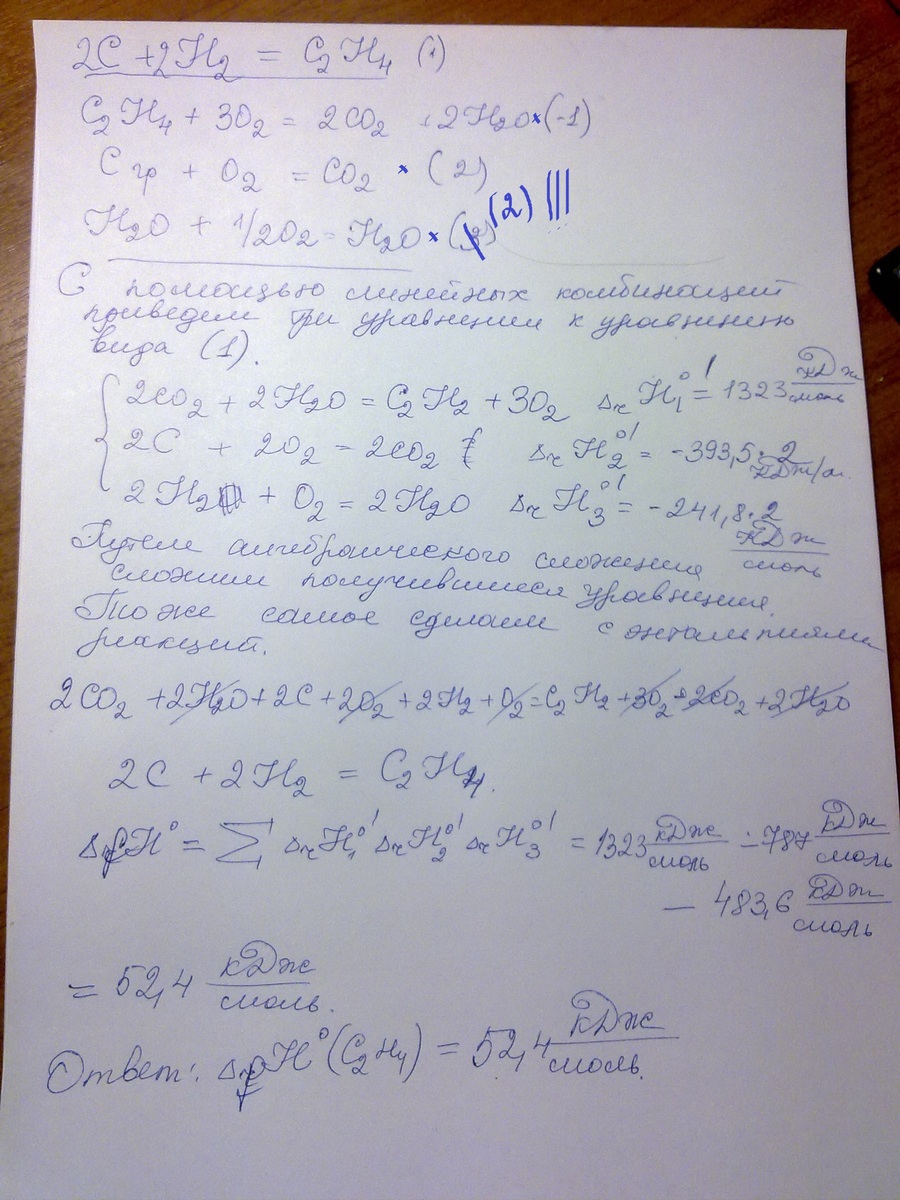 2C + 2H₂ = C₂H₄ (1)
C₂H₄ + 3O₂ = 2CO₂ + 2H₂O × (-1)
C гр + O₂ = CO₂ × (2)
H₂O + 1/2O₂ = H₂O × (2) |||
С помощью линейных комбинаций
приведем три уравнения к уравнению
вида (1).
2CO₂ + 2H₂O = C₂H₂ + 3O₂ ΔrH₁°' = 1323 кДж/моль
2C + 2O₂ = 2CO₂ ΔrH₂°' = -393,5·2 кДж/м.
2H₂ + O₂ = 2H₂O ΔrH₃°' = -241,8·2 кДж/моль
Путем алгебраического сложения
сложим получившиеся уравнения.
То же самое сделаем с энтальпиями
реакций.
2CO₂ + 2H₂O + 2C + 2O₂ + 2H₂ + O₂ = C₂H₂ + 3O₂ + 2CO₂ + 2H₂O
2C + 2H₂ = C₂H₄.
ΔfH° = Σ ΔrH₁°' ΔrH₂°' ΔrH₃°' = 1323 кДж/моль - 787 кДж/моль
- 483,6 кДж/моль
= 52,4 кДж/моль.
Ответ: ΔfH°(C₂H₄) = 52,4 кДж/моль.